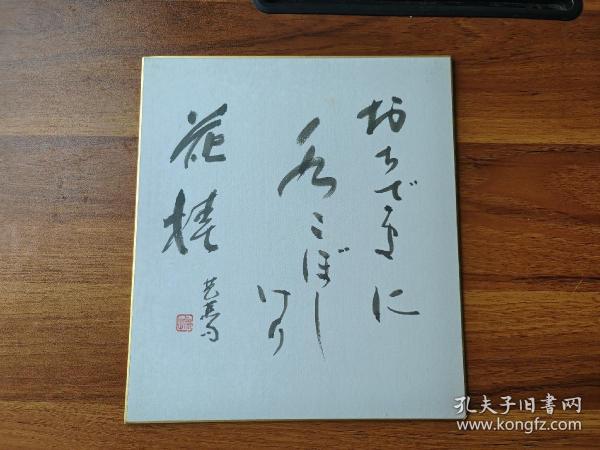 おちざまに
水こぼし
けり
花椿
孔夫子旧書网
www.kongfz.com